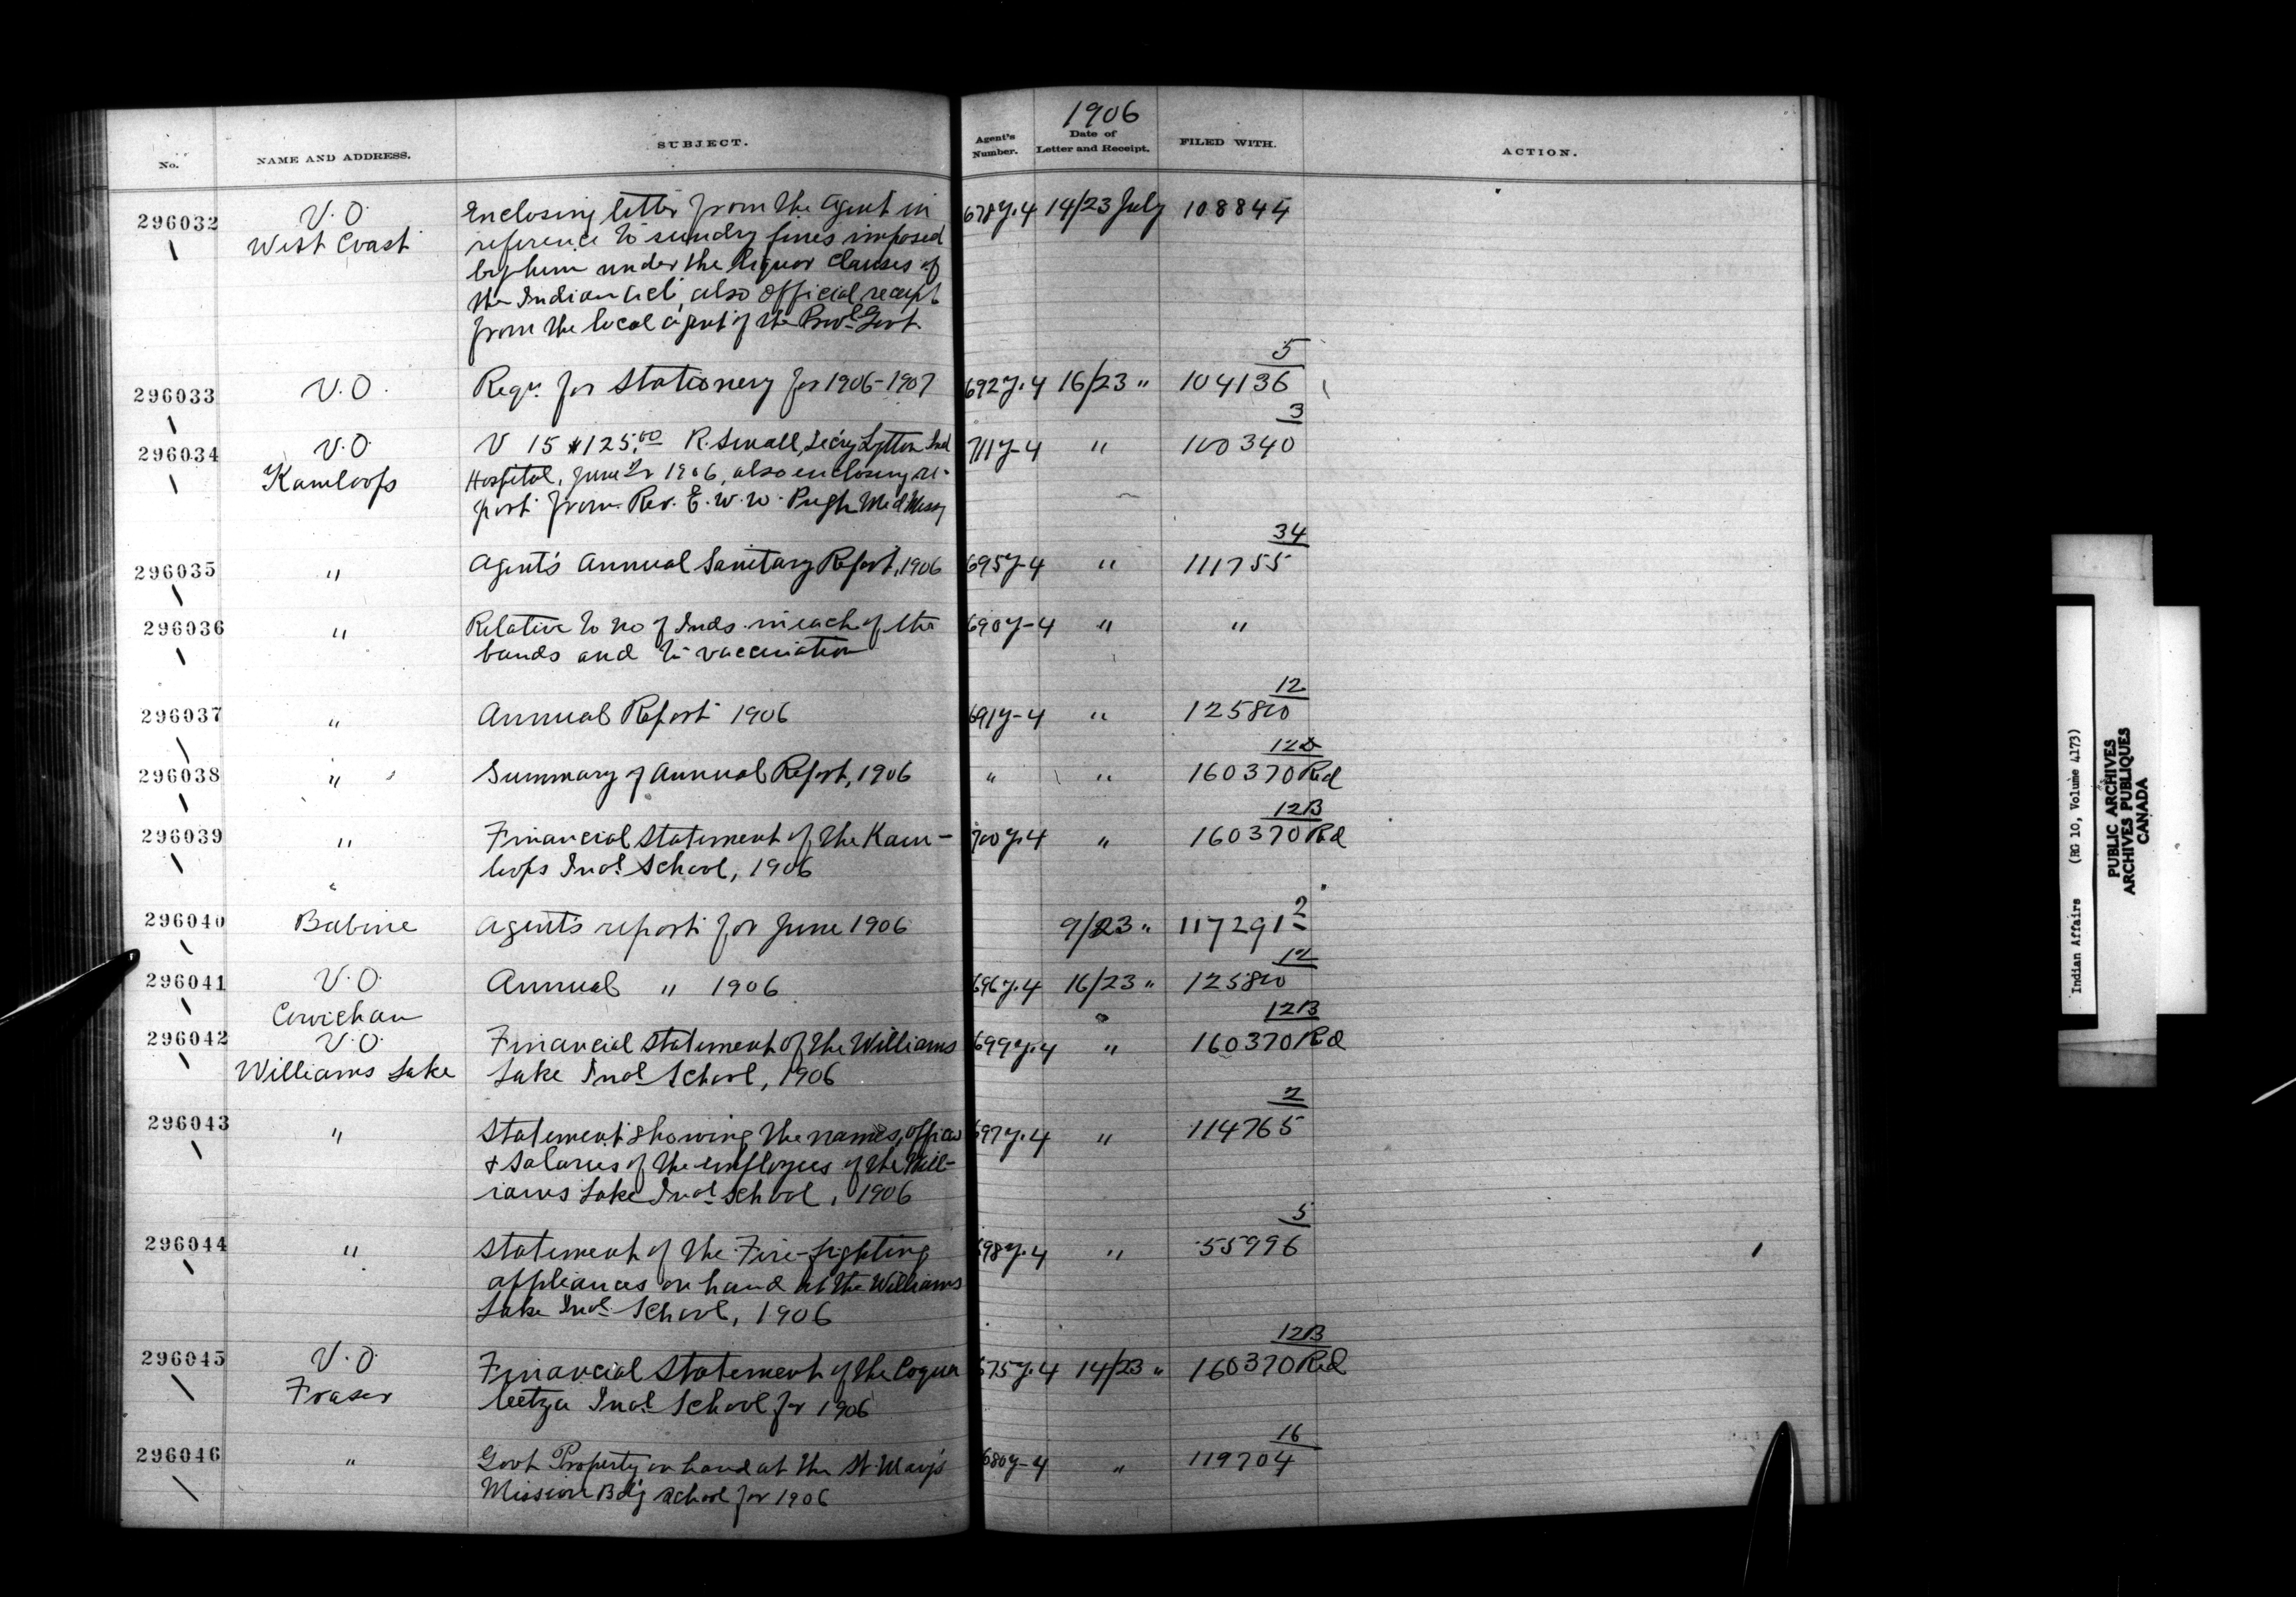 1906
No.
NAME AND ADDRESS.
SUBJECT.
Agent's Number.
Date of Letter and Receipt.
FILED WITH.
ACTION.
296032 V.O. Enclosing letter from the Agent in 678y.4 14/23 July 108844
West Coast reference to sundry fines imposed
by him under the Liquor Clauses of
the Indian Act, also official receipt
from the local agent of the Provl Govt.
5
296033 V.O. Reqn. for Stationery for 1906-1907 692y.4 16/23 " 104136
3
296034 V.O. V 15 $125.00 R. Small, Secy Lytton Ind 711y-4 " 100340
Kamloops Hospital, June 1906, also enclosing re-
port from Rev. E. W. W. Pugh Med Missy
34
296035 " Agent's Annual Sanitary Report, 1906 695y-4 " 111755
296036 " Relative to no of Inds. in each of the 690y-4 " "
bands and to vaccination
12
296037 " Annual Report 1906 691y-4 " 125800
296038 " Summary of Annual Report, 1906 " " 160370 Red
12B
296039 " Financial Statement of the Kam- 700y.4 " 160370 Red
loops Indl School, 1906
2
296040 Babine Agent's report for June 1906 9/23 " 117291
12
296041 V.O. Annual " 1906 696y.4 16/23 " 125800
Cowichan 12B
296042 V.O. Financial Statement of the Williams 699y.4 " 160370 Red
Williams Lake Lake Indl School, 1906
2
296043 " Statement showing the names, offices 697y.4 " 114765
& Salaries of the employees of the Will-
iams Lake Indl School, 1906
5
296044 " Statement of the Fire-fighting 698y.4 " 55996
appliances on hand at the Williams
Lake Indl School, 1906
12B
296045 V.O. Financial Statement of the Coqua 675y.4 14/23 " 160370 Red
Fraser leetza Indl School for 1906
16
296046 " Govt Property on hand at the St. Mary's 680y-4 " 119704
Mission Bdg School for 1906
Indian Affairs (RG 10, Volume 4173)
PUBLIC ARCHIVES
ARCHIVES PUBLIQUES
CANADA